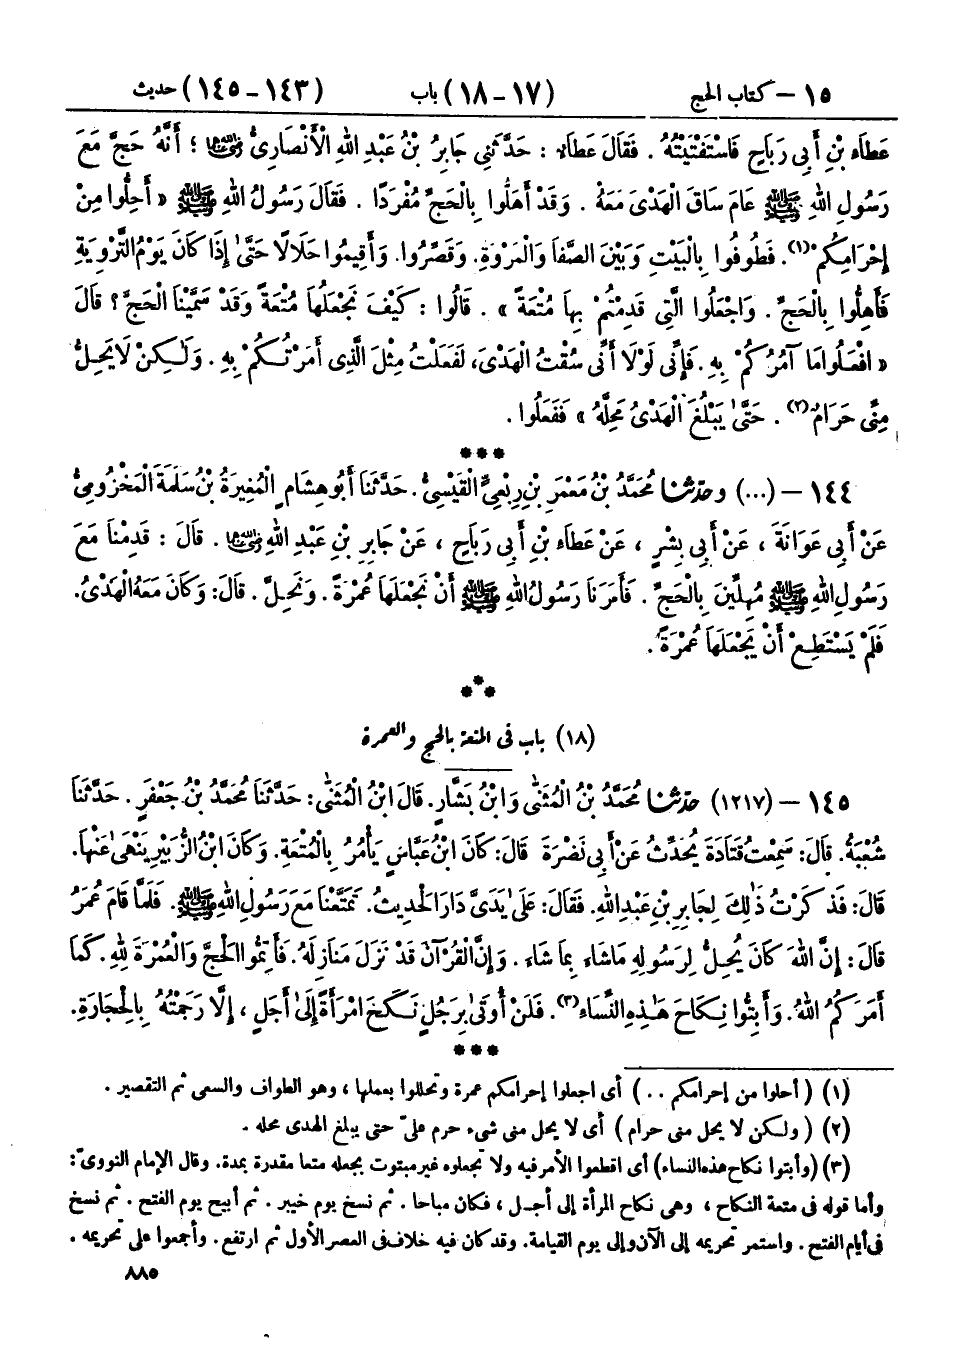 ١٥ – كتاب الحج (١٧ – ١٨) باب (١٤٣ – ١٤٥) حديث
عَطَاءِ بْنِ أَبِي رَبَاحٍ فَاسْتَفْتَيْتُهُ . فَقَالَ عَطَاءٌ : حَدَّثَنِي جَابِرُ بْنُ عَبْدِ اللهِ الْأَنْصَارِيُّ رضي الله عنهما ؛ أَنَّهُ حَجَّ مَعَ
رَسُولِ اللهِ ﷺ عَامَ سَاقَ الْهَدْيَ مَعَهُ . وَقَدْ أَهَلُّوا بِالْحَجِّ مُفْرَدًا . فَقَالَ رَسُولُ اللهِ ﷺ « أَحِلُّوا مِنْ
إِحْرَامِكُمْ(١). فَطُوفُوا بِالْبَيْتِ وَبَيْنَ الصَّفَا وَالْمَرْوَةِ. وَقَصِّرُوا. وَأَقِيمُوا حَلَالًا حَتَّىٰ إِذَا كَانَ يَوْمُ التَّرْوِيَةِ
فَأَهِلُّوا بِالْحَجِّ . وَاجْعَلُوا الَّتِي قَدِمْتُمْ بِهَا مُتْعَةً » . قَالُوا : كَيْفَ نَجْعَلُهَا مُتْعَةً وَقَدْ سَمَّيْنَا الْحَجَّ ؟ قَالَ
« افْعَلُوا مَا آمُرُكُمْ بِهِ . فَإِنِّي لَوْلَا أَنِّي سُقْتُ الْهَدْيَ، لَفَعَلْتُ مِثْلَ الَّذِي أَمَرْتُكُمْ بِهِ . وَلَـٰكِنْ لَا يَحِلُّ
مِنِّي حَرَامٌ(٢) . حَتَّىٰ يَبْلُغَ الْهَدْيُ مَحِلَّهُ » فَفَعَلُوا .
***
١٤٤ – (...) وحدّثنا مُحَمَّدُ بْنُ مَعْمَرِ بْنِ رِبْعِيٍّ الْقَيْسِيُّ . حَدَّثَنَا أَبُو هِشَامٍ الْمُغِيرَةُ بْنُ سَلَمَةَ الْمَخْزُومِيُّ
عَنْ أَبِي عَوَانَةَ ، عَنْ أَبِي بِشْرٍ ، عَنْ عَطَاءِ بْنِ أَبِي رَبَاحٍ ، عَنْ جَابِرِ بْنِ عَبْدِ اللهِ رضي الله عنهما . قَالَ : قَدِمْنَا مَعَ
رَسُولِ اللهِ ﷺ مُهِلِّينَ بِالْحَجِّ . فَأَمَرَنَا رَسُولُ اللهِ ﷺ أَنْ نَجْعَلَهَا عُمْرَةً . وَنَحِلَّ . قَالَ: وَكَانَ مَعَهُ الْهَدْيُ.
فَلَمْ يَسْتَطِعْ أَنْ يَجْعَلَهَا عُمْرَةً .
***
(١٨) باب فى المتعة بالحج والعمرة
١٤٥ – (١٢١٧) حدّثنا مُحَمَّدُ بْنُ الْمُثَنَّىٰ وَابْنُ بَشَّارٍ. قَالَ ابْنُ الْمُثَنَّىٰ: حَدَّثَنَا مُحَمَّدُ بْنُ جَعْفَرٍ . حَدَّثَنَا
شُعْبَةُ. قَالَ: سَمِعْتُ قَتَادَةَ يُحَدِّثُ عَنْ أَبِي نَضْرَةَ قَالَ: كَانَ ابْنُ عَبَّاسٍ يَأْمُرُ بِالْمُتْعَةِ. وَكَانَ ابْنُ الزُّبَيْرِ يَنْهَىٰ عَنْهَا.
قَالَ: فَذَكَرْتُ ذَٰلِكَ لِجَابِرِ بْنِ عَبْدِ اللهِ. فَقَالَ: عَلَىٰ يَدَيَّ دَارَ الْحَدِيثُ. تَمَتَّعْنَا مَعَ رَسُولِ اللهِ ﷺ. فَلَمَّا قَامَ عُمَرُ
قَالَ: إِنَّ اللهَ كَانَ يُحِلُّ لِرَسُولِهِ مَا شَاءَ بِمَا شَاءَ . وَإِنَّ الْقُرْآنَ قَدْ نَزَلَ مَنَازِلَهُ. فَأَتِمُّوا الْحَجَّ وَالْعُمْرَةَ لِلهِ. كَمَا
أَمَرَكُمُ اللهُ. وَأَبِتُّوا نِكَاحَ هَـٰذِهِ النِّسَاءِ(٣). فَلَنْ أُوتَىٰ بِرَجُلٍ نَكَحَ امْرَأَةً إِلَىٰ أَجَلٍ ، إِلَّا رَجَمْتُهُ بِالْحِجَارَةِ.
***
(١) ( أحلوا من إحرامكم .. ) أى اجعلوا إحرامكم عمرة وتحللوا بعملها ، وهو الطواف والسعى ثم التقصير .
(٢) ( ولكن لا يحل منى حرام ) أى لا يحل منى شىء حرم علىّ حتى يبلغ الهدى محله .
(٣) (وأبتوا نكاح هذه النساء) أى اقطعوا الأمر فيه ولا تجعلوه غير مبتوت بجعله متعا مقدرة بمدة. وقال الإمام النووىّ:
وأما قوله فى متعة النكاح ، وهى نكاح المرأة إلى أجل ، فكان مباحا . ثم نسخ يوم خيبر . ثم أبيح يوم الفتح . ثم نسخ
فى أيام الفتح . واستمر تحريمه إلى الآن وإلى يوم القيامة. وقد كان فيه خلاف فى العصر الأول ثم ارتفع. وأجمعوا على تحريمه .
٨٨٥